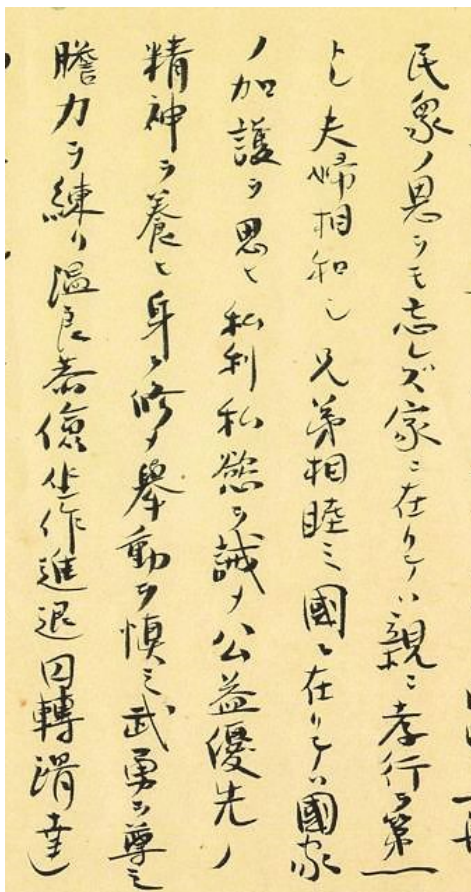 民衆ノ恩ヲモ忘レズ家ニ在リテハ親ニ孝行ヲ第一
トシ夫婦相和シ兄弟相睦ミ國ニ在リテハ國家
ノ加護ヲ思ヒ私利私慾ヲ誡メ公益優先ノ
精神ヲ養ヒ身ヲ修メ擧動ヲ慎ミ武勇ヲ尊ミ
膽力ヲ練リ温良恭儉坐作進退回轉滑達